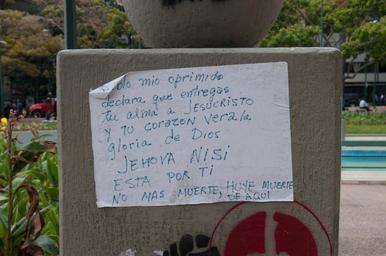 Pueblo mio oprimido
declara que entregas
tu alma a JESUCRISTO
y tu corazon vera la
gloria de Dios
JEHOVA NISI
ESTA POR TI
NO MAS MUERTE, HUYE MUERTE
DE AQUI